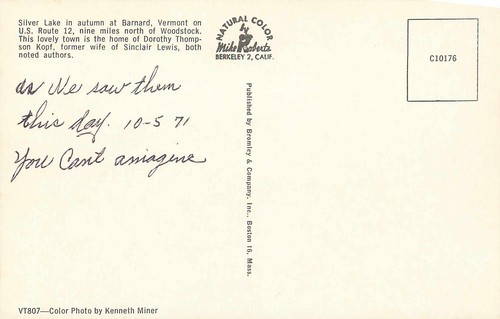 Silver Lake in autumn at Barnard, Vermont on
U.S. Route 12, nine miles north of Woodstock.
This lovely town is the home of Dorothy Thomp-
son Kopf, former wife of Sinclair Lewis, both
noted authors.
NATURAL COLOR
by
Mike Roberts
BERKELEY 2, CALIF.
C10176
as We saw them
this day. 10-5 71
You Cant amagine
Published by Bromley & Company, Inc., Boston 16, Mass.
VT807—Color Photo by Kenneth Miner